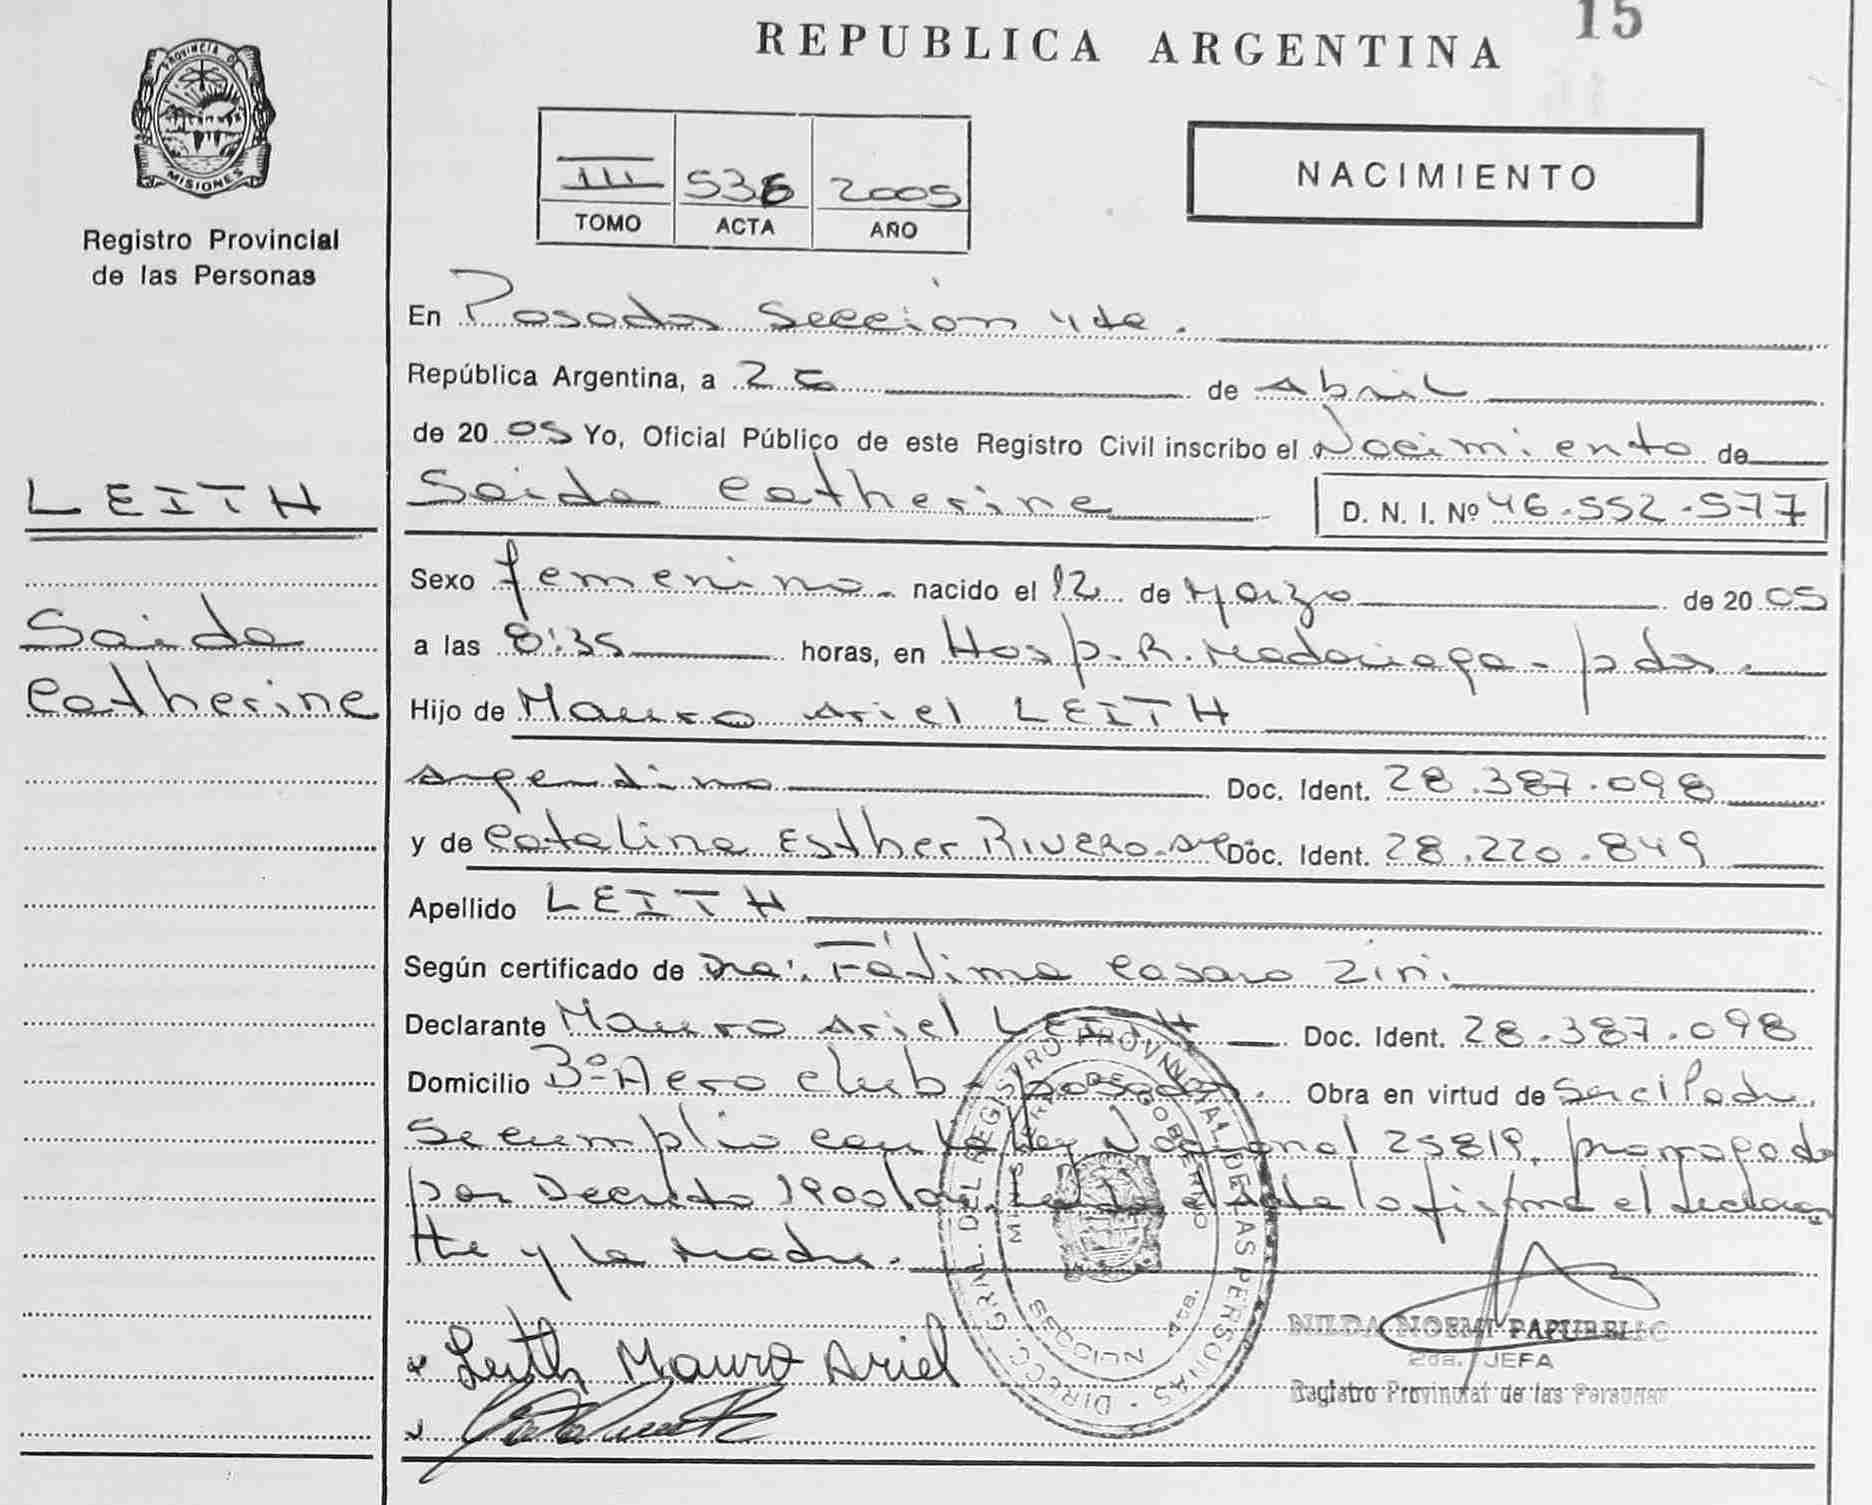 15
REPUBLICA ARGENTINA
PROVINCIA DE
MISIONES
Registro Provincial
de las Personas
III 536 2005
TOMO ACTA AÑO
NACIMIENTO
En Posadas Sección 4ta.
República Argentina, a 2 de Abril
de 2005 Yo, Oficial Público de este Registro Civil inscribo el Nacimiento de
LEITH
Saida Catherine D. N. I. Nº 46.552.577
Sexo femenino. nacido el 12 de Marzo de 2005
Saida
a las 8:35 horas, en Hosp. R. Madariaga - pdas.
Catherine
Hijo de Mauro Ariel LEITH
argentino Doc. Ident. 28.387.098
y de Catalina Esther RIVERO. arg. Doc. Ident. 28.220.849
Apellido LEITH
Según certificado de Dra. Fátima Casaro Ziri.
Declarante Mauro Ariel LEITH Doc. Ident. 28.387.098
Domicilio Bº Aero club - posadas. Obra en virtud de
Se cumplió con la ley Nacional 25819, prorrogada
por Decreto 1900/04. Leída el acta lo firma el declaran
te y la madre.
DIREC. GRAL. DEL REGISTRO PROVINCIAL DE LAS PERSONAS
Leith Mauro Ariel
2da. JEFA
Registro Provincial de las Personas